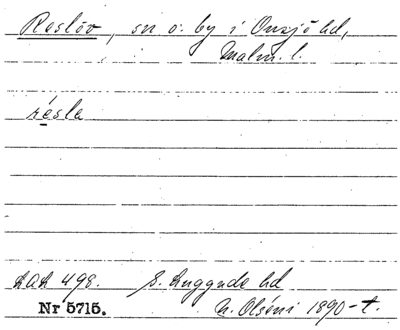 Roslöv, sn o. by i Onsjö hd,
Malm. l.
résla
LAL 498. S. Luggude hd
Nr 5715. N. Olséni 1890-t.